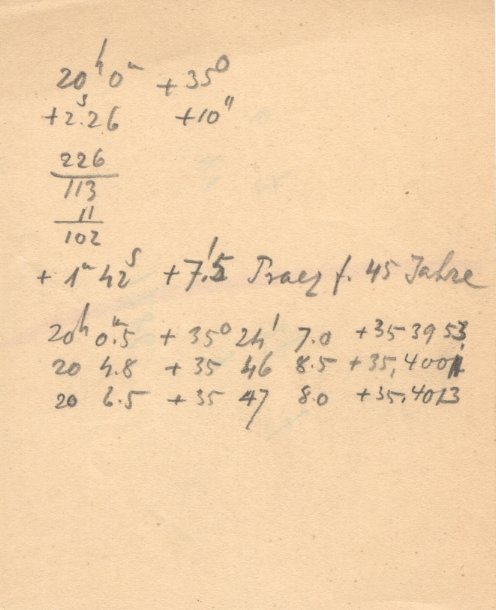 20ʰ 0ᵐ +35⁰
+2ˢ.26 +10"
226
113
11
102
+ 1ᵐ 42ˢ +7'.5 Praez f. 45 Jahre
20ʰ 0ᵐ.5 + 35⁰ 24' 7.0 +35 3953
20 4.8 + 35 46 8.5 +35,4001
20 6.5 + 35 47 8.0 +35.4013